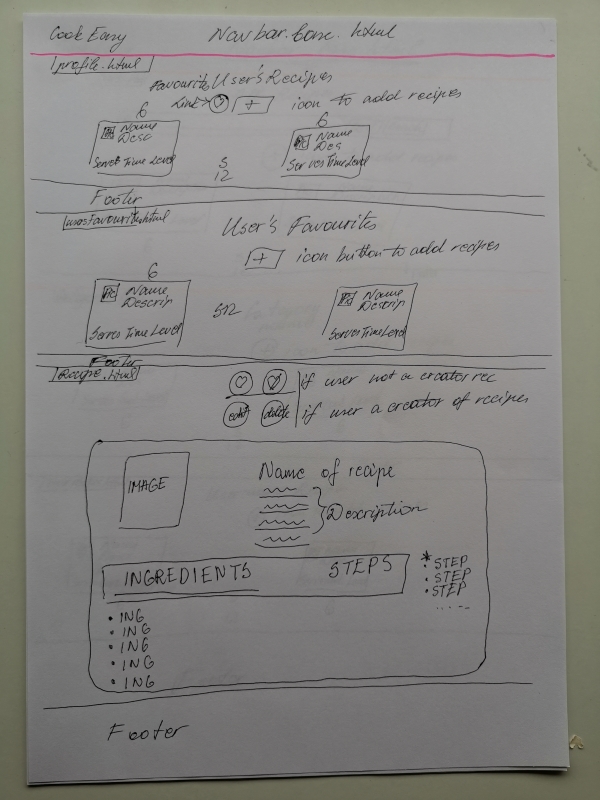 Cook Easy Navbar.base.html
profile.html
Favourite User's Recipes
Link → + icon to add recipes
6 6
Name Name
Desc Des
Serves Time Level S Serves Time Level
12
Footer
usersFavourite.html
User's Favourites
+ icon button to add recipes
6
Pic Name Pic Name
Descrip Descrip
Serves Time Level S12 Serves Time Level
Footer
Recipe.html
if user not a creator rec
edit delete if user a creator of recipes
IMAGE Name of recipe
Description
INGREDIENTS STEPS
* STEP
• STEP
• STEP
.....
• ING
• ING
• ING
• ING
• ING
Footer